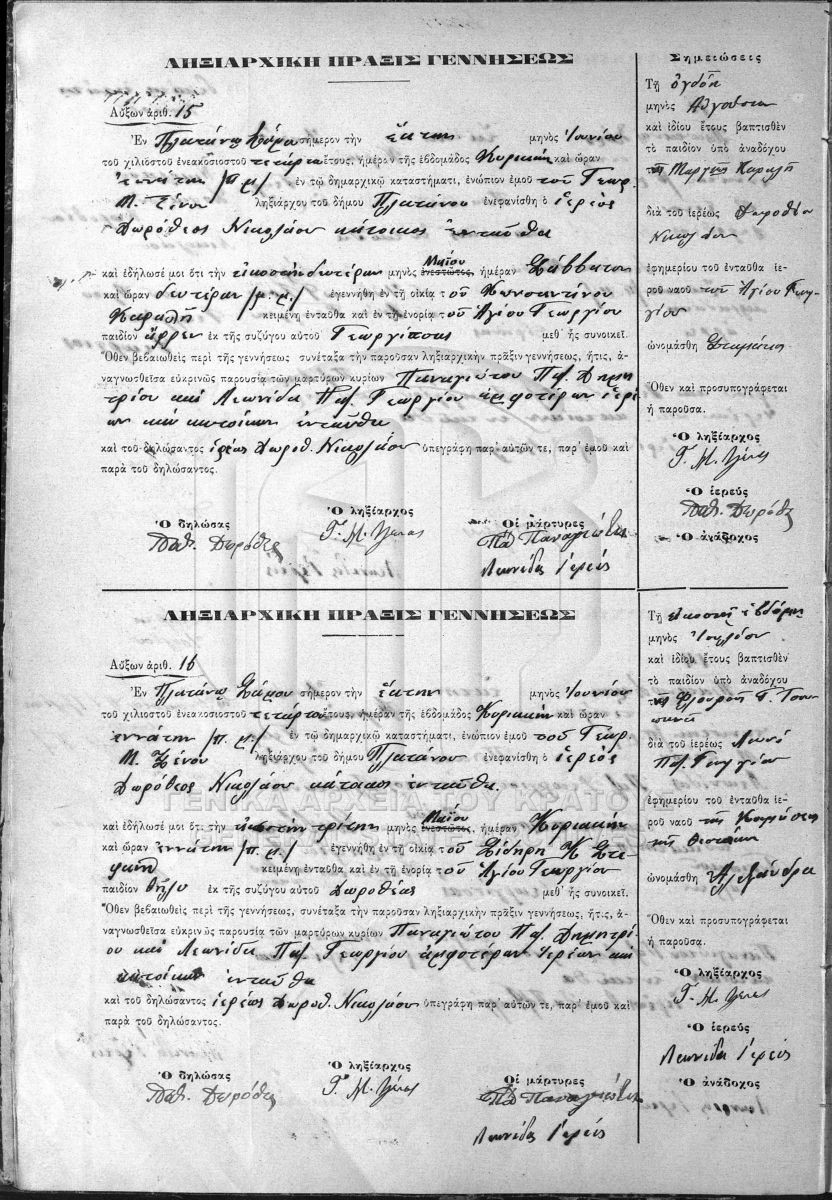 ΛΗΞΙΑΡΧΙΚΗ ΠΡΑΞΙΣ ΓΕΝΝΗΣΕΩΣ
Αὔξων ἀριθ. 15
Ἐν Πλατάνῳ Σάμου σήμερον τὴν ἕκτην μηνὸς Ἰουνίου
τοῦ χιλιοστοῦ ἐνεακοσιοστοῦ τετάρτου ἔτους, ἡμέραν τῆς ἑβδομάδος Κυριακὴν καὶ ὥραν
ἐννάτην /π.μ./ ἐν τῷ δημαρχικῷ καταστήματι, ἐνώπιον ἐμοῦ τοῦ Γεωρ.
Μ. Ξένου ληξιάρχου τοῦ δήμου Πλατάνου ἐνεφανίσθη ὁ ἱερεὺς
Δωρόθεος Νικολάου κάτοικος ἐνταῦθα
καὶ ἐδήλωσέ μοι ὅτι τὴν εἰκοστὴν δευτέραν μηνὸς ἐνεστῶτος, Μαΐου ἡμέραν Σάββατον
καὶ ὥραν δευτέραν /μ.μ./ ἐγεννήθη ἐν τῇ οἰκίᾳ τοῦ Κωνσταντίνου
Καραλῆ κειμένῃ ἐνταῦθα καὶ ἐν τῇ ἐνορίᾳ τοῦ Ἁγίου Γεωργίου
παιδίον ἄρρεν ἐκ τῆς συζύγου αὐτοῦ Γεωργίτσας μεθ᾿ ἧς συνοικεῖ.
Ὅθεν βεβαιωθεὶς περὶ τῆς γεννήσεως συνέταξα τὴν παροῦσαν ληξιαρχικὴν πρᾶξιν γεννήσεως, ἥτις, ἀ-
ναγνωσθεῖσα εὐκρινῶς παρουσίᾳ τῶν μαρτύρων κυρίων Παναγιώτου Παπ. Δημη
τρίου καὶ Λεωνίδα Παπ. Γεωργίου ἀμφοτέρων ἱερέ
ων καὶ κατοίκων ἐνταῦθα
καὶ τοῦ δηλώσαντος ἱερέως Δωροθ. Νικολάου ὑπεγράφη παρ᾿ αὐτῶν τε, παρ᾿ ἐμοῦ καὶ
παρὰ τοῦ δηλώσαντος.
Ὁ δηλώσας Ὁ ληξίαρχος Οἱ μάρτυρες
Παπ. Δωρόθε Γ. Μ. Ξένος Παπ Παναγιώτης
Λεωνίδας Ἱερεὺς
Σημειώσεις
Τῇ ὀγδόῃ
μηνὸς Αὐγούστου
καὶ ἰδίου ἔτους βαπτισθὲν
τὸ παιδίον ὑπὸ ἀναδόχου
τῆς Καραλῆ
διὰ τοῦ ἱερέως Δωροθέου
Νικολάου
ἐφημερίου τοῦ ἐνταῦθα ἱε-
ροῦ ναοῦ τοῦ Ἁγίου Γεωρ
γίου
ὠνομάσθη Σταμάτιος
Ὅθεν καὶ προσυπογράφεται
ἡ παροῦσα.
Ὁ ληξίαρχος
Γ. Μ. Ξένος
Ὁ ἱερεὺς
Παπ. Δωρόθε
Ὁ ἀνάδοχος
ΛΗΞΙΑΡΧΙΚΗ ΠΡΑΞΙΣ ΓΕΝΝΗΣΕΩΣ
Αὔξων ἀριθ. 16
Ἐν Πλατάνῳ Σάμου σήμερον τὴν ἕκτην μηνὸς Ἰουνίου
τοῦ χιλιοστοῦ ἐνεακοσιοστοῦ τετάρτου ἔτους, ἡμέραν τῆς ἑβδομάδος Κυριακὴν καὶ ὥραν
ἐννάτην /π.μ./ ἐν τῷ δημαρχικῷ καταστήματι, ἐνώπιον ἐμοῦ τοῦ Γεωρ.
Μ. Ξένου ληξιάρχου τοῦ δήμου Πλατάνου ἐνεφανίσθη ὁ ἱερεὺς
Δωρόθεος Νικολάου κάτοικος ἐνταῦθα.
ΓΕΝΙΚΑ ΑΡΧΕΙΑ ΤΟΥ ΚΡΑΤΟΥΣ
καὶ ἐδήλωσέ μοι ὅτι τὴν εἰκοστὴν τρίτην μηνὸς ἐνεστῶτος, Μαΐου ἡμέραν Κυριακὴν
καὶ ὥραν ἐννάτην /π.μ./ ἐγεννήθη ἐν τῇ οἰκίᾳ τοῦ Σιδηρῆ Κ Στε
φανῆ κειμένῃ ἐνταῦθα καὶ ἐν τῇ ἐνορίᾳ τοῦ Ἁγίου Γεωργίου
παιδίον θῆλυ ἐκ τῆς συζύγου αὐτοῦ Δωροθέας μεθ᾿ ἧς συνοικεῖ.
Ὅθεν βεβαιωθεὶς περὶ τῆς γεννήσεως, συνέταξα τὴν παροῦσαν ληξιαρχικὴν πρᾶξιν γεννήσεως, ἥτις, ἀ-
ναγνωσθεῖσα εὐκρινῶς παρουσίᾳ τῶν μαρτύρων κυρίων Παναγιώτου Παπ. Δημητρί
ου καὶ Λεωνίδα Παπ. Γεωργίου ἀμφοτέρων Ἱερέων καὶ
κατοίκων ἐνταῦθα
καὶ τοῦ δηλώσαντος ἱερέως Δωροθ. Νικολάου ὑπεγράφη παρ᾿ αὐτῶν τε, παρ᾿ ἐμοῦ καὶ
παρὰ τοῦ δηλώσαντος.
Ὁ δηλώσας Ὁ ληξίαρχος Οἱ μάρτυρες
Παπ. Δωρόθε Γ. Μ. Ξένος Παπ Παναγιώτης
Λεωνίδας Ἱερεὺς
Τῇ εἰκοστῇ ἑβδόμῃ
μηνὸς Ἰουλίου
καὶ ἰδίου ἔτους βαπτισθὲν
τὸ παιδίον ὑπὸ ἀναδόχου
τῆς Γ.
διὰ τοῦ ἱερέως Λεωνί
Παπ. Γεωργίου
ἐφημερίου τοῦ ἐνταῦθα ἱε-
ροῦ ναοῦ τῆς Κοιμήσεως
τῆς Θεοτόκου
ὠνομάσθη Ἀλεξάνδρα
Ὅθεν καὶ προσυπογράφεται
ἡ παροῦσα.
Ὁ ληξίαρχος
Γ. Μ. Ξένος
Ὁ ἱερεὺς
Λεωνίδα Ἱερεὺς
Ὁ ἀνάδοχος